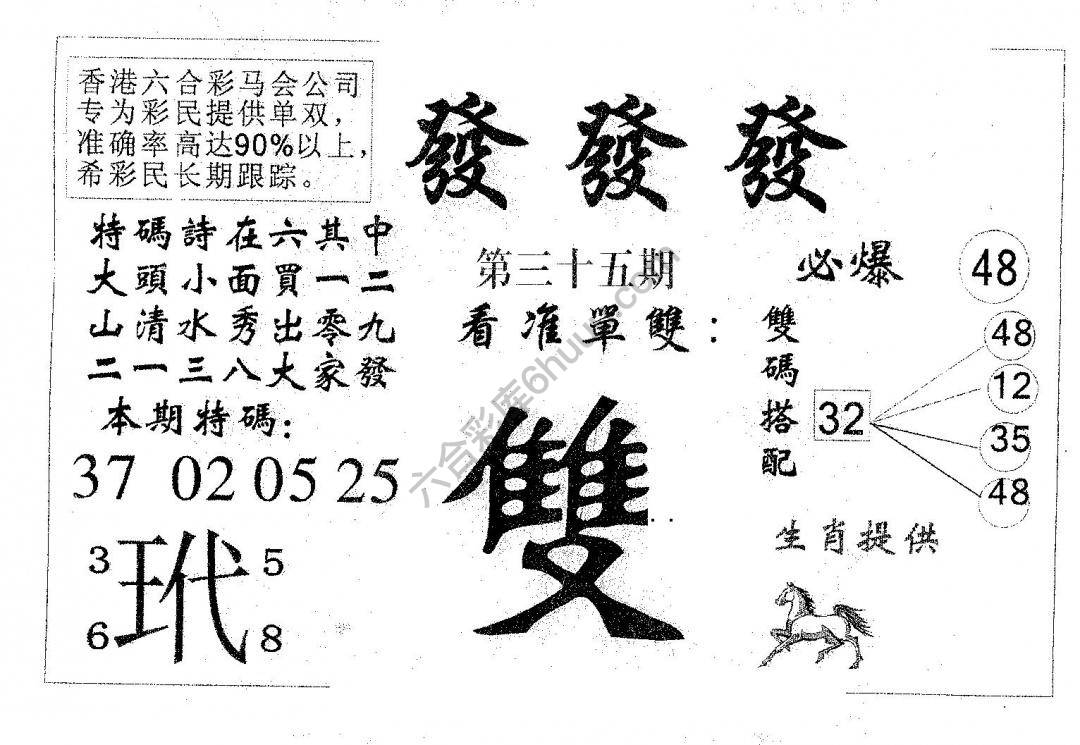 香港六合彩马会公司
专为彩民提供单双，
准确率高达90%以上，
希彩民长期跟踪。
發發發
特碼詩在六其中
大頭小面買一二
山清水秀出零九
二一三八大家發
本期特碼：
37 02 05 25
3 玳 5
6 8
第三十五期
看准單雙：
雙
必爆 48
雙碼搭配
32
48
12
35
48
生肖提供
六合彩库6huu.com